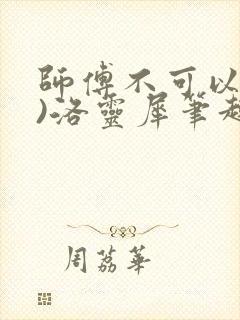 師傅不可以
)洛靈犀筆趣
周荔華